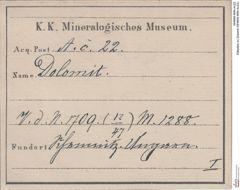 K. K. Mineralogisches Museum.
Acq. Post A. č. 22.
Name Dolomit.
V. d. N. 1709. (12/47) M. 1288.
Fundort Schemnitz, Ungarn.
I